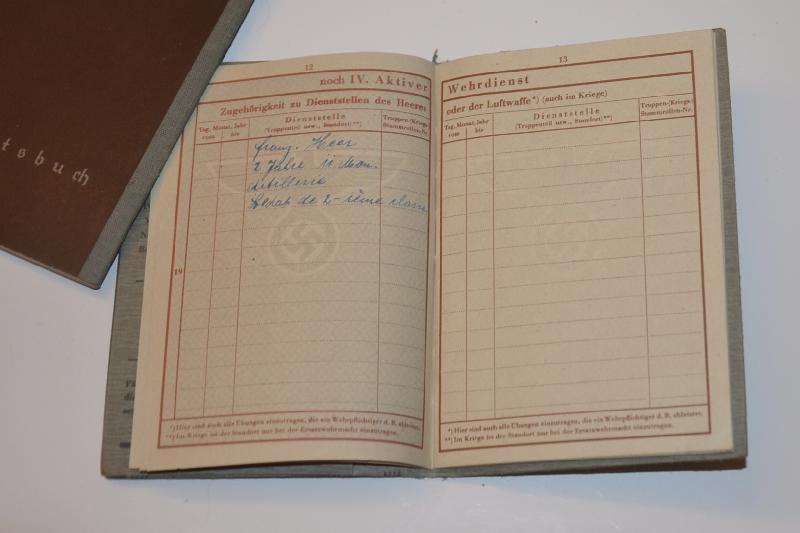 tsbuch
12
noch IV. Aktiver
Zugehörigkeit zu Dienststellen des Heeres
Tag, Monat, Jahr
vom bis
Dienststelle
(Truppenteil usw., Standort)**)
Truppen-(Kriegs-
Stammrollen-Nr.
franz. Heer
2 Jahre 11 Mon.
Artillerie
de 2-ième classe
19
*) Hier sind auch alle Übungen einzutragen, die ein Wehrpflichtiger d. B. ableistet.
**) Im Kriege ist der Standort nur bei der Ersatzwehrmacht einzutragen.
13
Wehrdienst
oder der Luftwaffe*) (auch im Kriege)
Tag, Monat, Jahr
vom bis
Dienststelle
(Truppenteil usw., Standort)**)
Truppen-(Kriegs-
Stammrollen-Nr.
*) Hier sind auch alle Übungen einzutragen, die ein Wehrpflichtiger d. B. ableistet.
**) Im Kriege ist der Standort nur bei der Ersatzwehrmacht einzutragen.